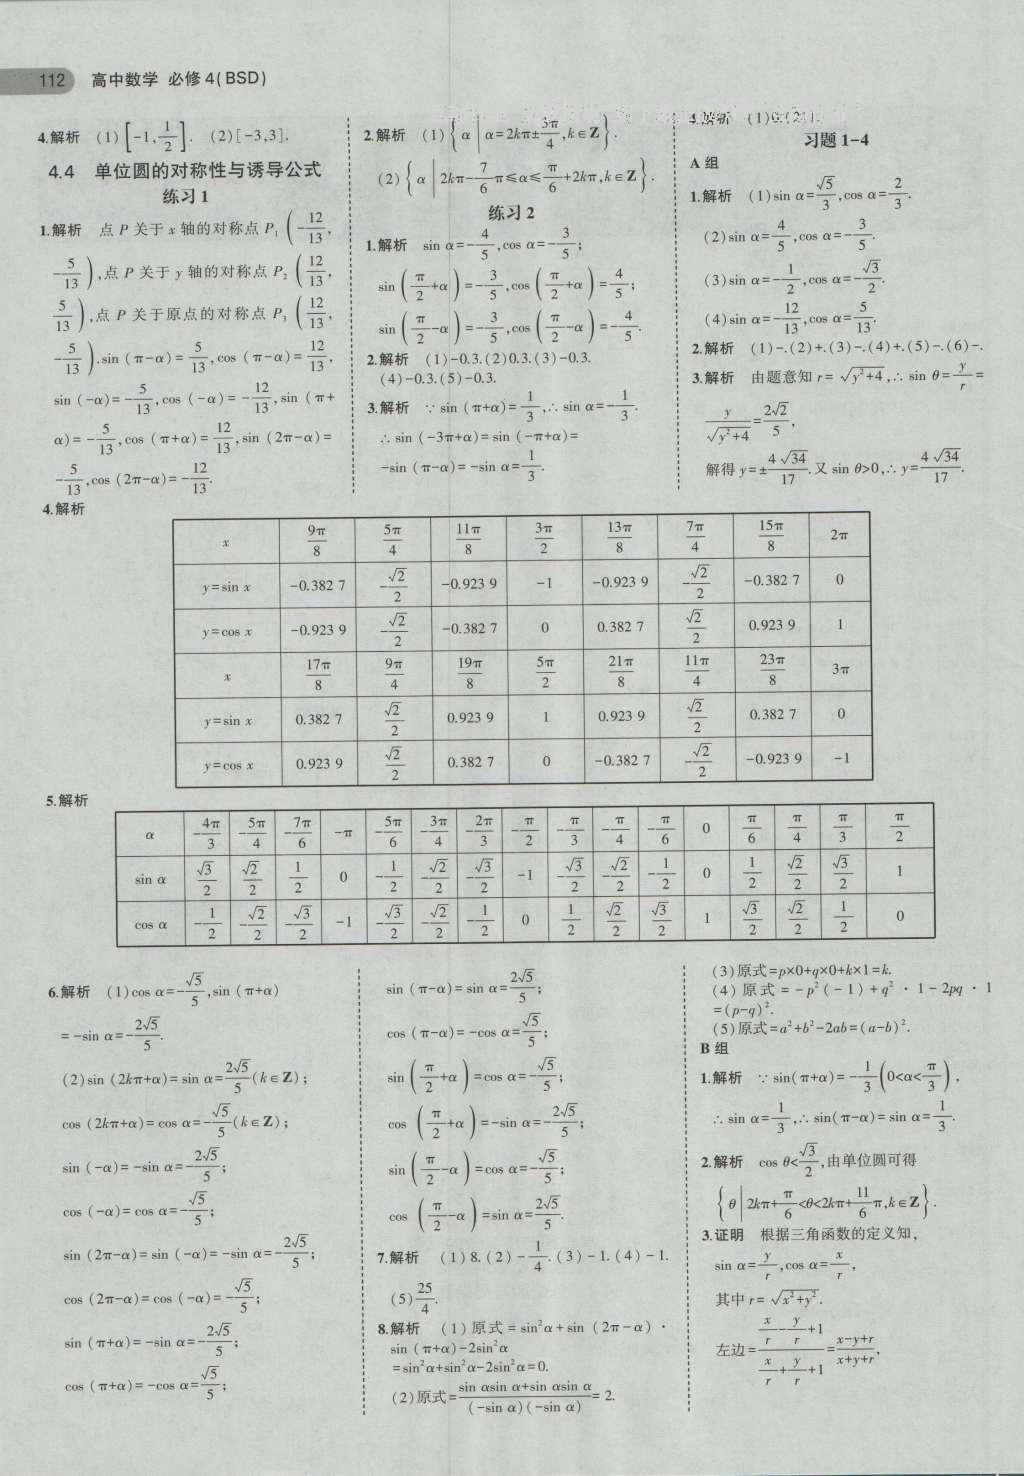 112 高中数学 必修4(BSD)
4.解析 (1)[-1,1/2]. (2)[-3,3].
4.4 单位圆的对称性与诱导公式
练习1
1.解析 点 P 关于 x 轴的对称点 P₁(-12/13,
-5/13),点 P 关于 y 轴的对称点 P₂(12/13,
5/13),点 P 关于原点的对称点 P₃(12/13,
-5/13).sin (π-α)=5/13,cos (π-α)=12/13,
sin (-α)=-5/13,cos (-α)=-12/13,sin (π+
α)=-5/13,cos (π+α)=12/13,sin (2π-α)=
-5/13,cos (2π-α)=-12/13.
2.解析 (1){α|α=2kπ±3π/4,k∈Z}.
(2){α|2kπ-7/6π≤α≤π/6+2kπ,k∈Z}.
练习2
1.解析 sin α=-4/5,cos α=-3/5;
sin(π/2+α)=-3/5,cos(π/2+α)=4/5;
sin(π/2-α)=-3/5,cos(π/2-α)=-4/5.
2.解析 (1)-0.3.(2)0.3.(3)-0.3.
(4)-0.3.(5)-0.3.
3.解析 ∵ sin (π+α)=1/3,∴ sin α=-1/3.
∴ sin (-3π+α)=sin (-π+α)=
-sin (π-α)=-sin α=1/3.
4.解析 (1)0.(2)1.
习题1-4
A 组
1.解析 (1)sin α=√5/3,cos α=2/3.
(2)sin α=4/5,cos α=-3/5.
(3)sin α=-1/2,cos α=-√3/2.
(4)sin α=-12/13,cos α=5/13.
2.解析 (1)-.(2)+.(3)-.(4)+.(5)-.(6)-.
3.解析 由题意知 r=√(y²+4),∴ sin θ=y/r=
y/√(y²+4)=2√2/5,
解得 y=±4√34/17.又 sin θ>0,∴ y=4√34/17.
4.解析
x 9π/8 5π/4 11π/8 3π/2 13π/8 7π/4 15π/8 2π
y=sin x -0.382 7 -√2/2 -0.923 9 -1 -0.923 9 -√2/2 -0.382 7 0
y=cos x -0.923 9 -√2/2 -0.382 7 0 0.382 7 √2/2 0.923 9 1
x 17π/8 9π/4 19π/8 5π/2 21π/8 11π/4 23π/8 3π
y=sin x 0.382 7 √2/2 0.923 9 1 0.923 9 √2/2 0.382 7 0
y=cos x 0.923 9 √2/2 0.382 7 0 -0.382 7 -√2/2 -0.923 9 -1
5.解析
α -4π/3 -5π/4 -7π/6 -π -5π/6 -3π/4 -2π/3 -π/2 -π/3 -π/4 -π/6 0 π/6 π/4 π/3 π/2
sin α √3/2 √2/2 1/2 0 -1/2 -√2/2 -√3/2 -1 -√3/2 -√2/2 -1/2 0 1/2 √2/2 √3/2 1
cos α -1/2 -√2/2 -√3/2 -1 -√3/2 -√2/2 -1/2 0 1/2 √2/2 √3/2 1 √3/2 √2/2 1/2 0
6.解析 (1)cos α=-√5/5,sin (π+α)
=-sin α=-2√5/5.
(2)sin (2kπ+α)=sin α=2√5/5(k∈Z);
cos (2kπ+α)=cos α=-√5/5(k∈Z);
sin (-α)=-sin α=-2√5/5;
cos (-α)=cos α=-√5/5;
sin (2π-α)=sin (-α)=-sin α=-2√5/5;
cos (2π-α)=cos (-α)=-√5/5;
sin (π+α)=-sin α=-2√5/5;
cos (π+α)=-cos α=√5/5;
sin (π-α)=sin α=2√5/5;
cos (π-α)=-cos α=√5/5;
sin(π/2+α)=cos α=-√5/5;
cos(π/2+α)=-sin α=-2√5/5;
sin(π/2-α)=cos α=-√5/5;
cos(π/2-α)=sin α=2√5/5.
7.解析 (1)8.(2)-1/4.(3)-1.(4)-1.
(5)25/4.
8.解析 (1)原式=sin²α+sin (2π-α)·
sin (π+α)-2sin²α
=sin²α+sin²α-2sin²α=0.
(2)原式=(sin αsin α+sin αsin α)/((-sin α)(-sin α))=2.
(3)原式=p×0+q×0+k×1=k.
(4)原式=-p²(-1)+q²·1-2pq·1
=(p-q)².
(5)原式=a²+b²-2ab=(a-b)².
B 组
1.解析 ∵ sin(π+α)=-1/3(0<α<π/3),
∴ sin α=1/3,∴ sin(π-α)=sin α=1/3.
2.解析 cos θ<√3/2,由单位圆可得
{θ|2kπ+π/6<θ<2kπ+11/6π,k∈Z}.
3.证明 根据三角函数的定义知,
sin α=y/r,cos α=x/r,
其中 r=√(x²+y²).
左边=(x/r-y/r+1)/(x/r+y/r+1)=(x-y+r)/(x+y+r),